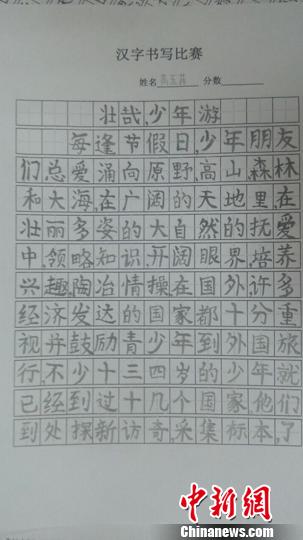 汉字书写比赛
姓名 分数
壮哉,少年游
每逢节假日,少年朋友
们总爱涌向原野,高山,森林
和大海,在广阔的天地里,在
壮丽多姿的大自然的抚爱
中,领略知识,开阔眼界,培养
兴趣,陶冶情操在国外许多
经济发达的国家都十分重
视并鼓励青少年到外国旅
行,不少十三四岁的少年就
已经到过十几个国家他们
到处探新访奇,采集标本,了
中新网
Chinanews.com